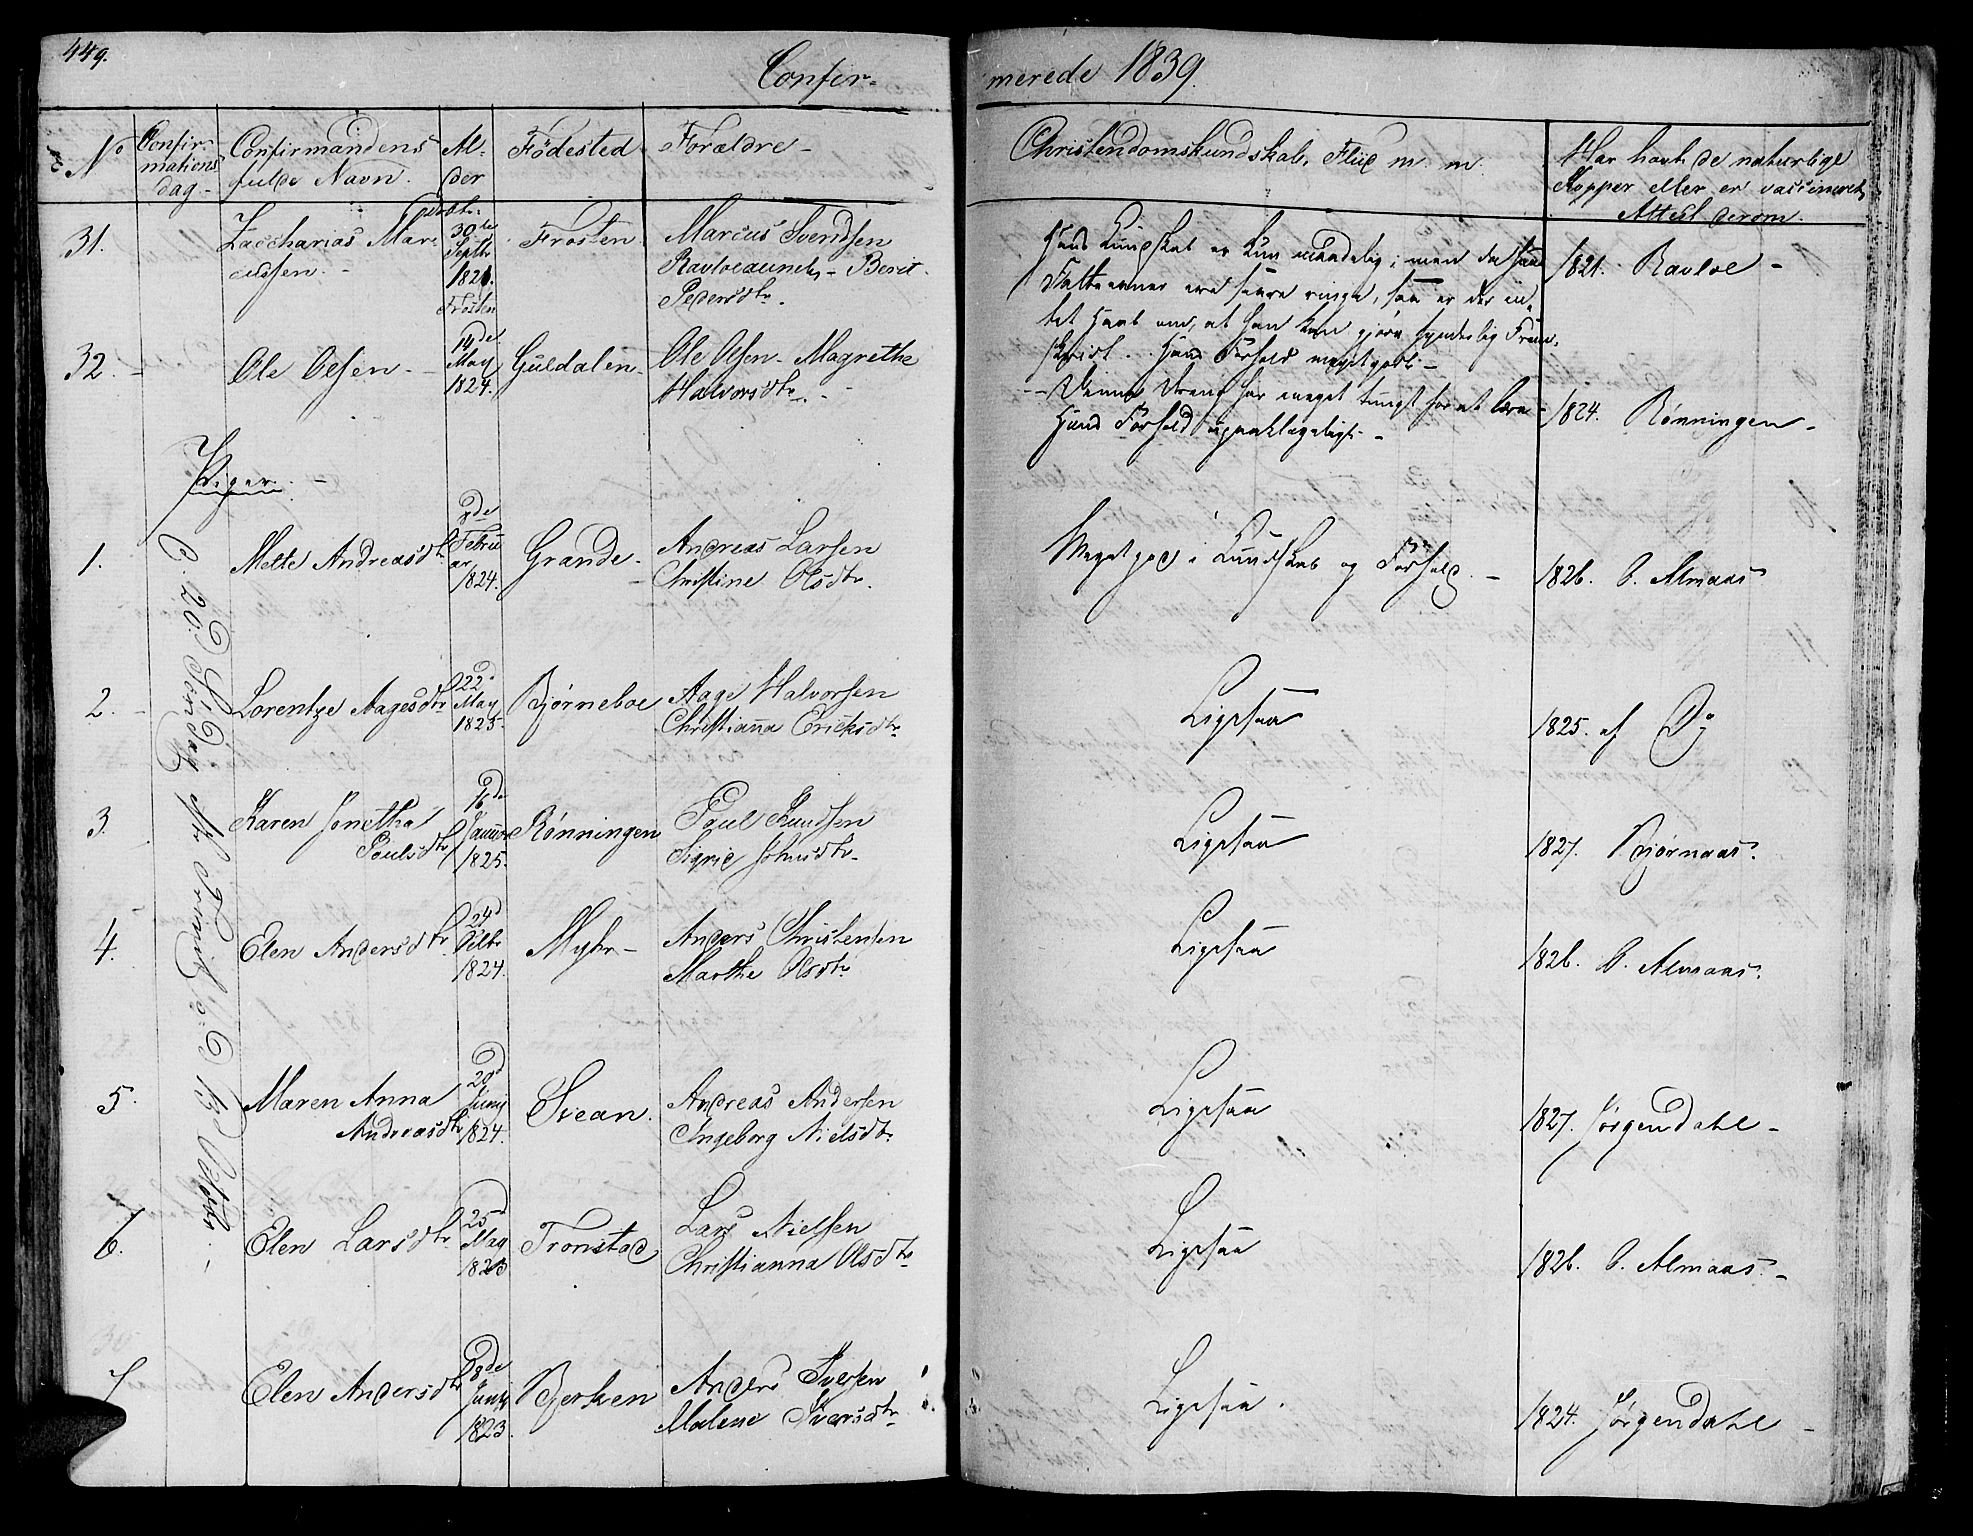 449.
Confir-
merede 1839.
No
Confir-
mations
dag.-
Confirmandens
fulde Navn.
Al-
der
Fødested
Forældre-
Christendomskundskab, Flid m. m.
Har havt de naturlige
Kopper eller er vaccineret,
Attest derom.
31.
Zaccharias Mar-
cusen.-
30te
Septbr
1821.
Frosten
Frosten
Marcus Svendsen
Ravloeaunet,- Berit
Pedersdtr.
Hans Kundskab er kun maadelig; men da hans
Fatteevner ere saare ringe, saa er der in-
tet Haab om, at han kan gjøre synderlig Frem-
skridt. Hans Forhold meget godt.-
1821. Ravloe-
32.-
Ole Olsen.-
19de
May
1824.
Guldalen-
Ole Olsen- Magrethe
Halvorsdtr.-
Denne Dreng har meget tungt for at lære-
Hans Forhold upaaklageligt.-
1824. Rønningen-
Piger.-
D. 20 Søndag
1.
Mette Andreasdtr
8de
Febru
ar
1824.
Grande.-
Andreas Larsen
Christine Olsdtr.
Meget god i Kundskab og Forhold.-
1826. O. Almaas
2.-
Lorentze Aagesdtr
22d
May
1825-
Bjørneboe
Aage Halvorsen
Christianna Ericksdtr
Ligesaa
1825. af Do
3.
Karen Jonetha
Poulsdtr
16de
Januar
1825.
Rønningen
Poul Knudsen
Sigrid Johnsdtr-
Ligesaa
1827. Bjørnaas.
4.
Elen Andersdtr.
24d
Octbr
1824.
Myhr-
Anders Christensen
Marthe Olsdtr
Ligesaa
1826. O. Almaas.
5.
Maren Anna
Andreasdtr
20d
Junij
1824.
Svean.
Andreas Andersen
Ingeborg Nielsdtr.
Ligesaa
1827. Jørgendahl-
6.
Elen Larsdtr
25d
May
1823
Tronstad
Lars Nielsen
Christianna Olsdtr
Ligesaa
1826. O. Almaas.-
7
Elen Andersdtr
8de
Junij
1823.
Bjerken
Anders Iversen
Malene Iversdtr
Ligesaa.
1824. Jørgendahl-